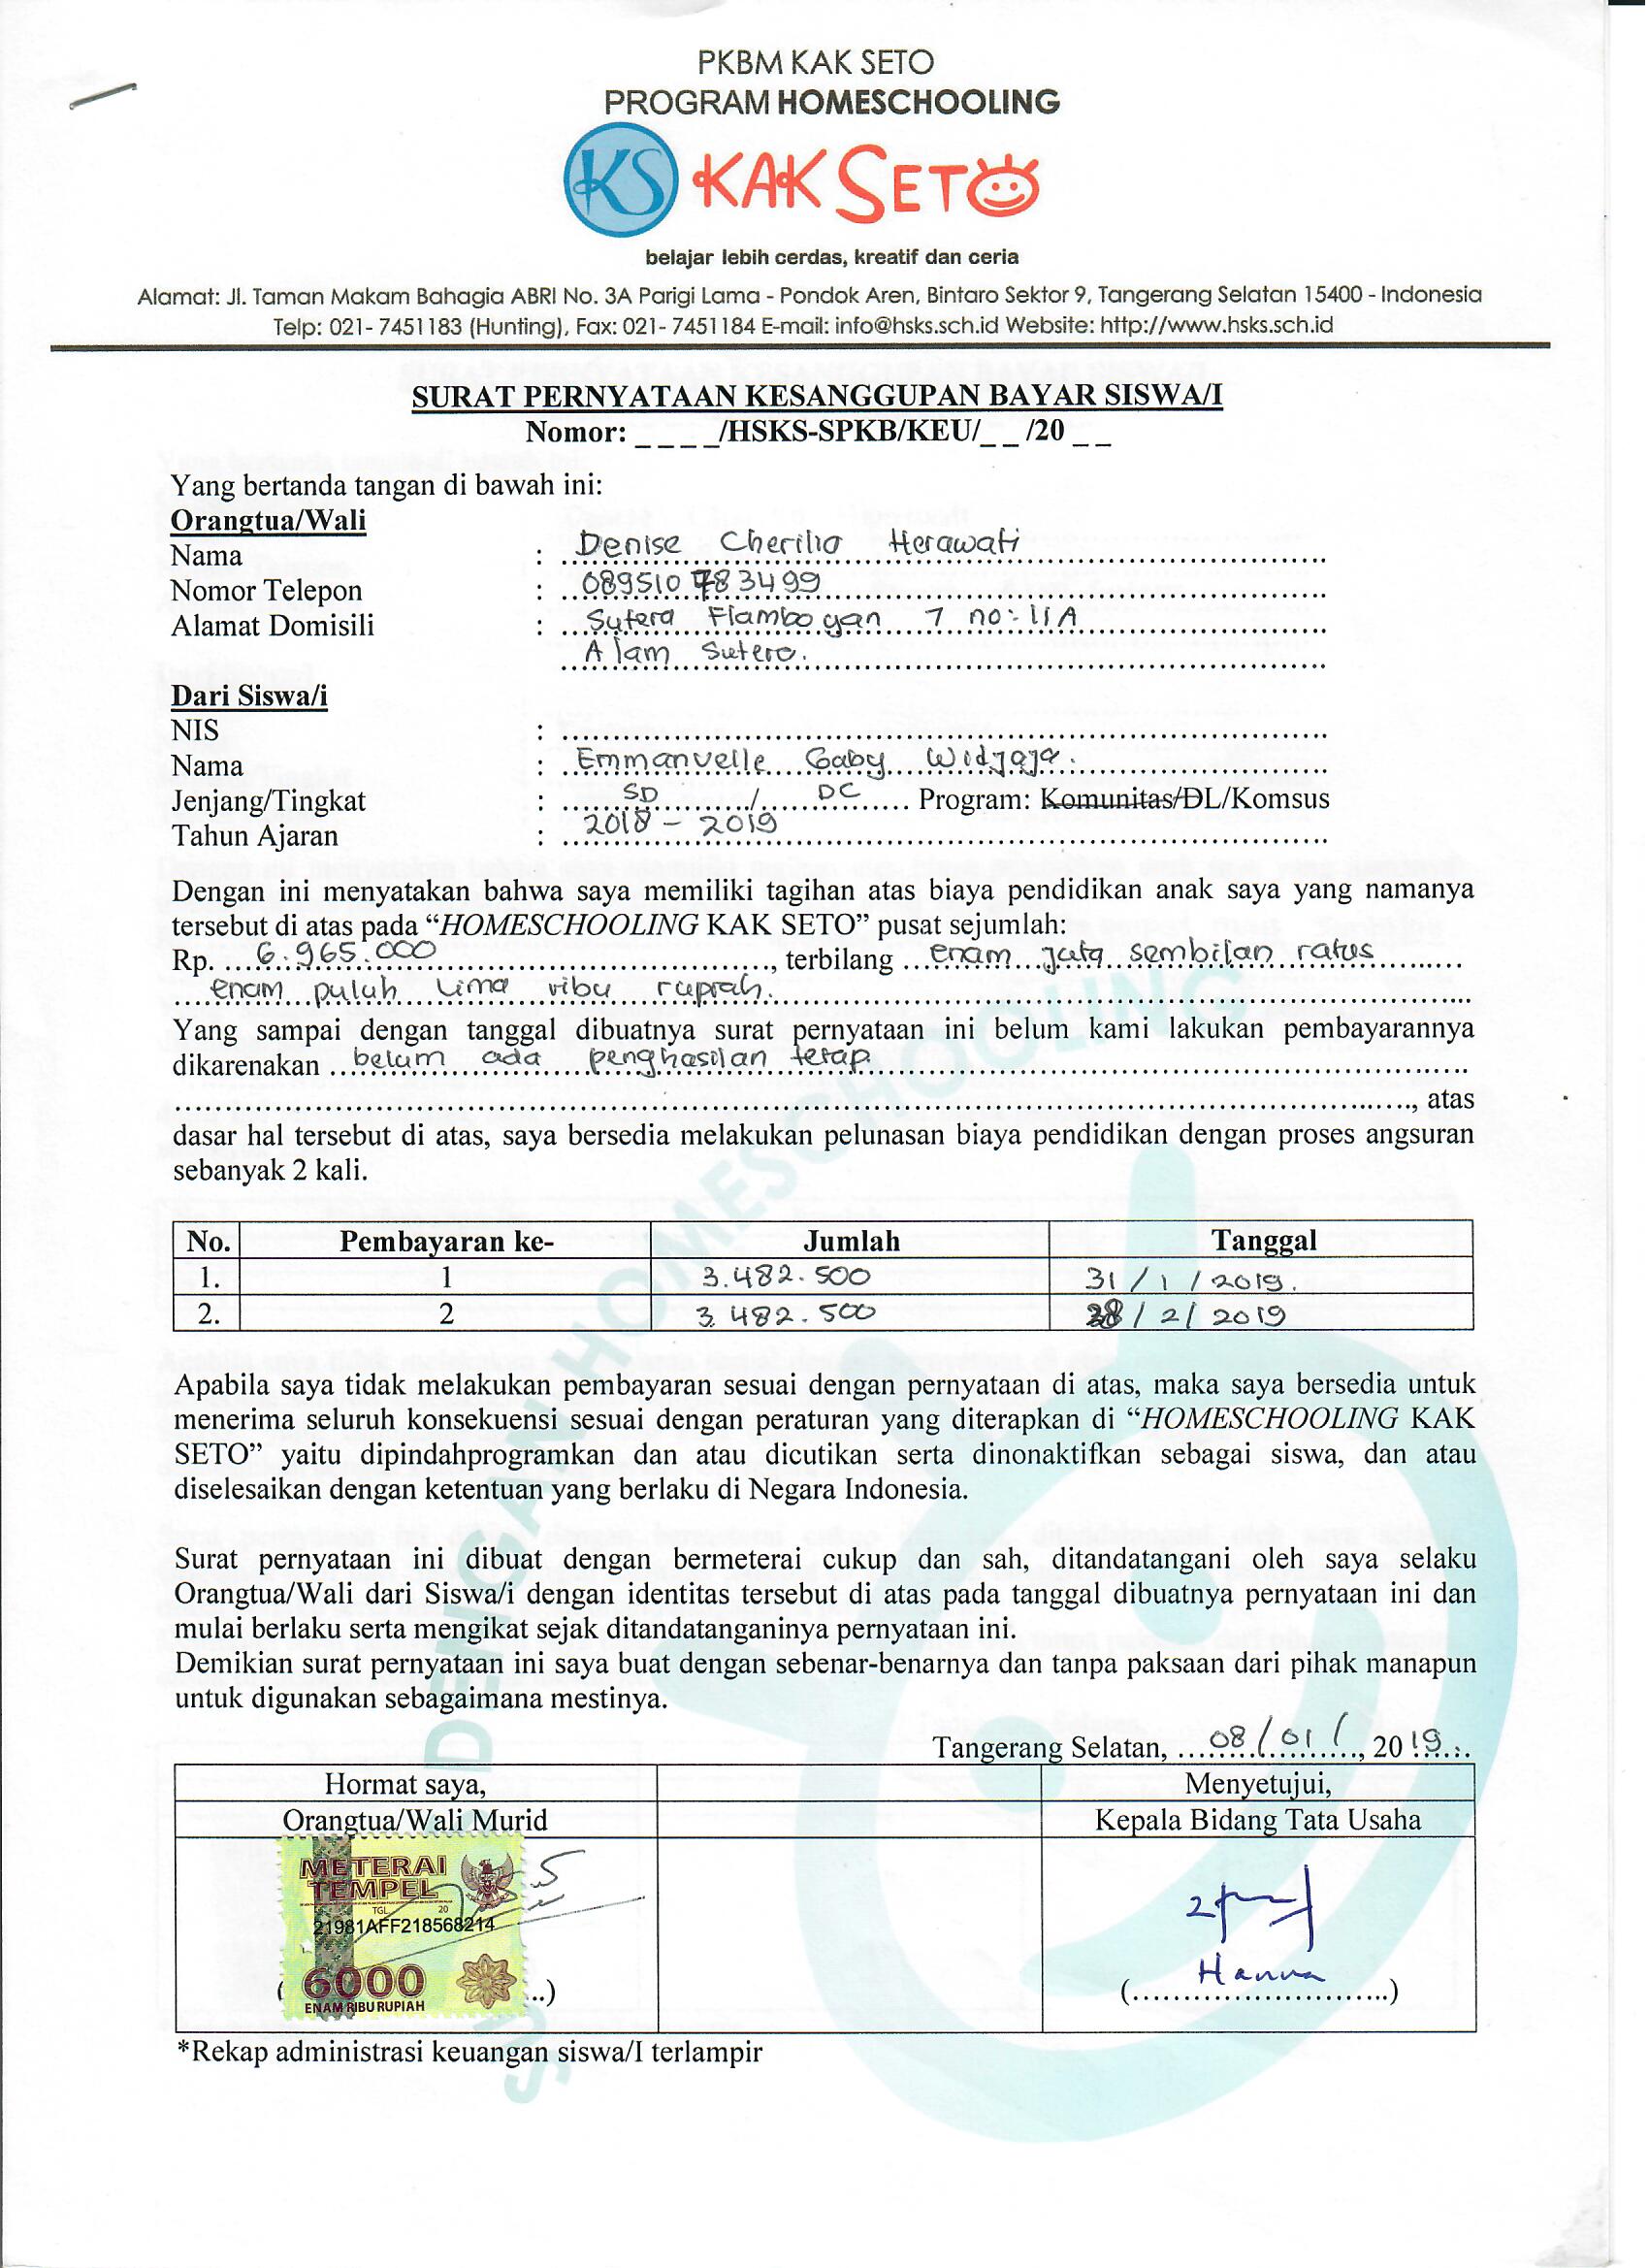 PKBM KAK SETO
PROGRAM HOMESCHOOLING
KS KAK SETO
belajar lebih cerdas, kreatif dan ceria
Alamat: Jl. Taman Makam Bahagia ABRI No. 3A Parigi Lama - Pondok Aren, Bintaro Sektor 9, Tangerang Selatan 15400 - Indonesia
Telp: 021- 7451183 (Hunting), Fax: 021- 7451184 E-mail: info@hsks.sch.id Website: http://www.hsks.sch.id
SURAT PERNYATAAN KESANGGUPAN BAYAR SISWA/I
Nomor: _ _ _ _/HSKS-SPKB/KEU/_ _ /20 _ _
Yang bertanda tangan di bawah ini:
Orangtua/Wali
Nama : Denise Cherilia Herawati
Nomor Telepon : 089510783499
Alamat Domisili : Sutera Flamboyan 7 no: 11A
Alam Sutera.
Dari Siswa/i
NIS :
Nama : Emmanuelle Gaby Widjaja.
Jenjang/Tingkat : SD / DC Program: Komunitas/DL/Komsus
Tahun Ajaran : 2018 - 2019
Dengan ini menyatakan bahwa saya memiliki tagihan atas biaya pendidikan anak saya yang namanya
tersebut di atas pada “HOMESCHOOLING KAK SETO” pusat sejumlah:
Rp. 6.965.000, terbilang enam juta sembilan ratus
enam puluh lima ribu rupiah.
Yang sampai dengan tanggal dibuatnya surat pernyataan ini belum kami lakukan pembayarannya
dikarenakan belum ada penghasilan tetap
, atas
dasar hal tersebut di atas, saya bersedia melakukan pelunasan biaya pendidikan dengan proses angsuran
sebanyak 2 kali.
No. Pembayaran ke- Jumlah Tanggal
1. 1 3.482.500 31 / 1 / 2019.
2. 2 3.482.500 28 / 2 / 2019
Apabila saya tidak melakukan pembayaran sesuai dengan pernyataan di atas, maka saya bersedia untuk
menerima seluruh konsekuensi sesuai dengan peraturan yang diterapkan di “HOMESCHOOLING KAK
SETO” yaitu dipindahprogramkan dan atau dicutikan serta dinonaktifkan sebagai siswa, dan atau
diselesaikan dengan ketentuan yang berlaku di Negara Indonesia.
Surat pernyataan ini dibuat dengan bermeterai cukup dan sah, ditandatangani oleh saya selaku
Orangtua/Wali dari Siswa/i dengan identitas tersebut di atas pada tanggal dibuatnya pernyataan ini dan
mulai berlaku serta mengikat sejak ditandatanganinya pernyataan ini.
Demikian surat pernyataan ini saya buat dengan sebenar-benarnya dan tanpa paksaan dari pihak manapun
untuk digunakan sebagaimana mestinya.
Tangerang Selatan, 08/01/, 2019
Hormat saya, Menyetujui,
Orangtua/Wali Murid Kepala Bidang Tata Usaha
METERAI
TEMPEL
TGL 20
21981AFF218568214
6000
ENAM RIBU RUPIAH
Hanna
*Rekap administrasi keuangan siswa/I terlampir
DENGAN HOMESCHOOLING